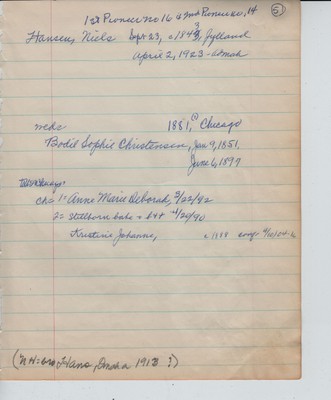 5
1st Pioneer no 16 & 2nd Pioneer no, 14
Hansen, Niels Sept 23, c1843, Jylland
April 2, 1923 - Omaha
1881, (?) Chicago
Bodil Sophie Christensen, Jan 9, 1851,
June 6, 1897
ch= 1= Anne Marie Deborah, 3/22/82
2= Stillborn babe - b & d 4/29/90
Kristine Johanne,
(NH= bro, Hans, Omaha 1913 ?)